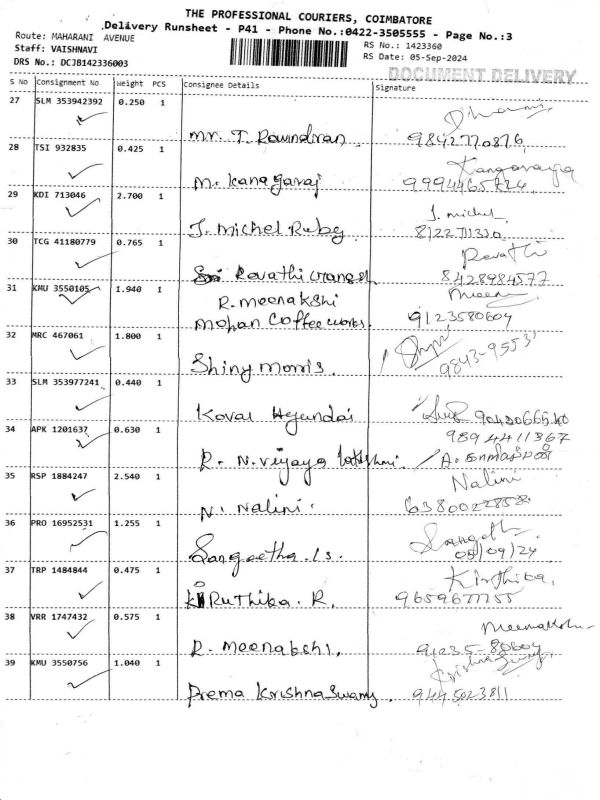 THE PROFESSIONAL COURIERS, COIMBATORE
Delivery Runsheet - P41 - Phone No.:0422-3505555 - Page No.:3
Route: MAHARANI AVENUE
Staff: VAISHNAVI
DRS No.: DCJB142336003
RS No.: 1423360
RS Date: 05-Sep-2024
DOCUMENT DELIVERY
S No Consignment No Weight PCS Consignee Details Signature
27 SLM 353942392 0.250 1
Mr. T. Ravindran 9842770876
28 TSI 932835 0.425 1 Kangaraya
M. Kanagaraj
29 KDI 713046 2.700 1 J. michel
J. Michel Ruby
30 TCG 41180779 0.765 1 Revathi
Revathi 8428984577
31 KMU 3550105 1.940 1 Meena
R. Meenakshi
Mohan Coffee works. 9123580604
32 MRC 467061 1.800 1
Shiny Morris. 9843-95531
33 SLM 353977241 0.440 1
Kovai Hyundai
34 APK 1201637 0.630 1 9894411367
R. N. Vijaya Lakshmi
35 RSP 1884247 2.540 1 Nalini
N. Nalini.
36 PRO 16952531 1.255 1
Sangeetha. 05/09/24
37 TRP 1484844 0.475 1 Kirthiba.
KiRuthiba. R. 9659677755
38 VRR 1747432 0.575 1 Meenakshi
R. Meenakshi. 91235-80604
39 KMU 3550756 1.040 1 Krishna Swamy
Prema Krishna Swamy. 9445023811